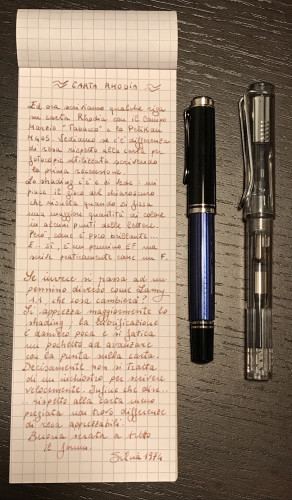 CARTA RHODIA
Ed ora scriviamo qualche riga
su carta Rhodia con il Campo
Marzio "Tabacco" e la Pelikan
M805. Vediamo se c'è differenza
di resa rispetto alla carta da
fotocopie utilizzata scrivendo
la prima recensione.
Lo shading c'è e si vede: mi
piace il gioco del chiaroscuro
che risulta quando si fissa
una maggior quantità di colore
in alcuni punti delle lettere.
Però, come è poco brillante...
E sì, è un pennino EF ma
scrive praticamente come un F.
Se invece si passa ad un
pennino diverso come Lamy
1.1, che cosa cambierà?
Si apprezza maggiormente lo
shading; la lubrificazione
è davvero poca e si fatica
un pochetto ad avanzare
con la punta sulla carta.
Decisamente non si tratta
di un inchiostro per scrivere
velocemente. Infine che dire...
rispetto alla carta meno
pregiata non trovo differenze
di resa apprezzabili.
Buona serata a tutto
il forum.
Silvia 1974